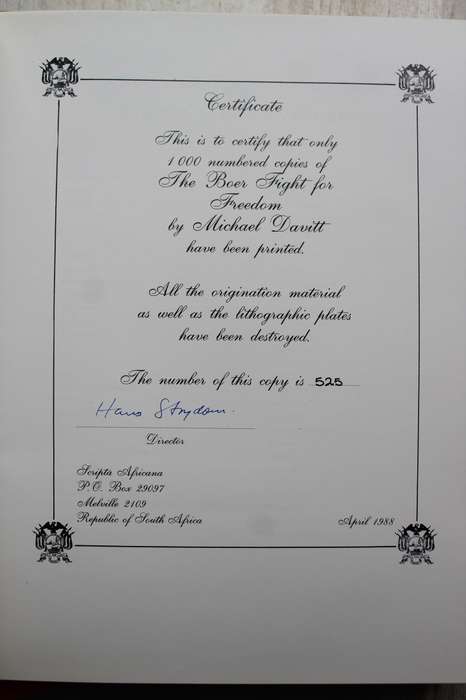 Certificate
This is to certify that only
1 000 numbered copies of
The Boer Fight for
Freedom
by Michael Davitt
have been printed.
All the origination material
as well as the lithographic plates
have been destroyed.
The number of this copy is 525
Hans Strydom.
Director
Scripta Africana
P.O. Box 29097
Melville 2109
Republic of South Africa
April 1988